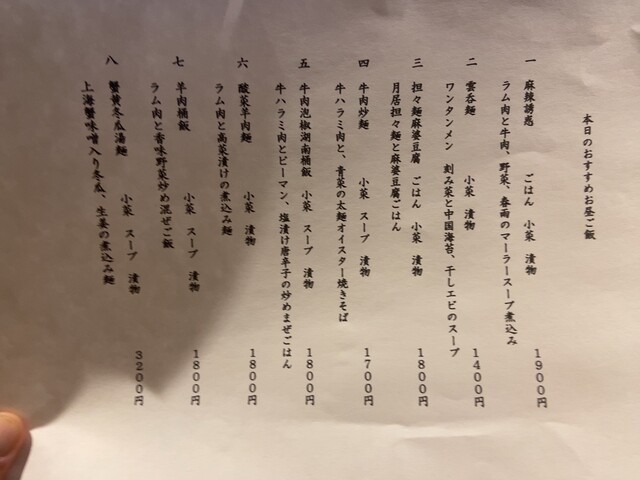 本日のおすすめお昼ご飯
一 麻辣誘惑 ごはん 小菜 漬物 1900円
ラム肉と牛肉、野菜、春雨のマーラースープ煮込み
二 雲呑麺 小菜 漬物 1400円
ワンタンメン 刻み菜と中国海苔、干しエビのスープ
三 担々麺麻婆豆腐 ごはん 小菜 漬物 1800円
月居担々麺と麻婆豆腐ごはん
四 牛肉炒麺 小菜 スープ 漬物 1700円
牛ハラミ肉と、青菜の太麺オイスター焼きそば
五 牛肉泡椒湖南桶飯 小菜 スープ 漬物 1800円
牛ハラミ肉とピーマン、塩漬け唐辛子の炒めまぜごはん
六 酸菜羊肉麺 小菜 漬物 1800円
ラム肉と高菜漬けの煮込み麺
七 羊肉桶飯 小菜 スープ 漬物 1800円
ラム肉と香味野菜炒め混ぜご飯
八 蟹黄冬瓜湯麺 小菜 スープ 漬物 3200円
上海蟹味噌入り冬瓜、生姜の煮込み麺